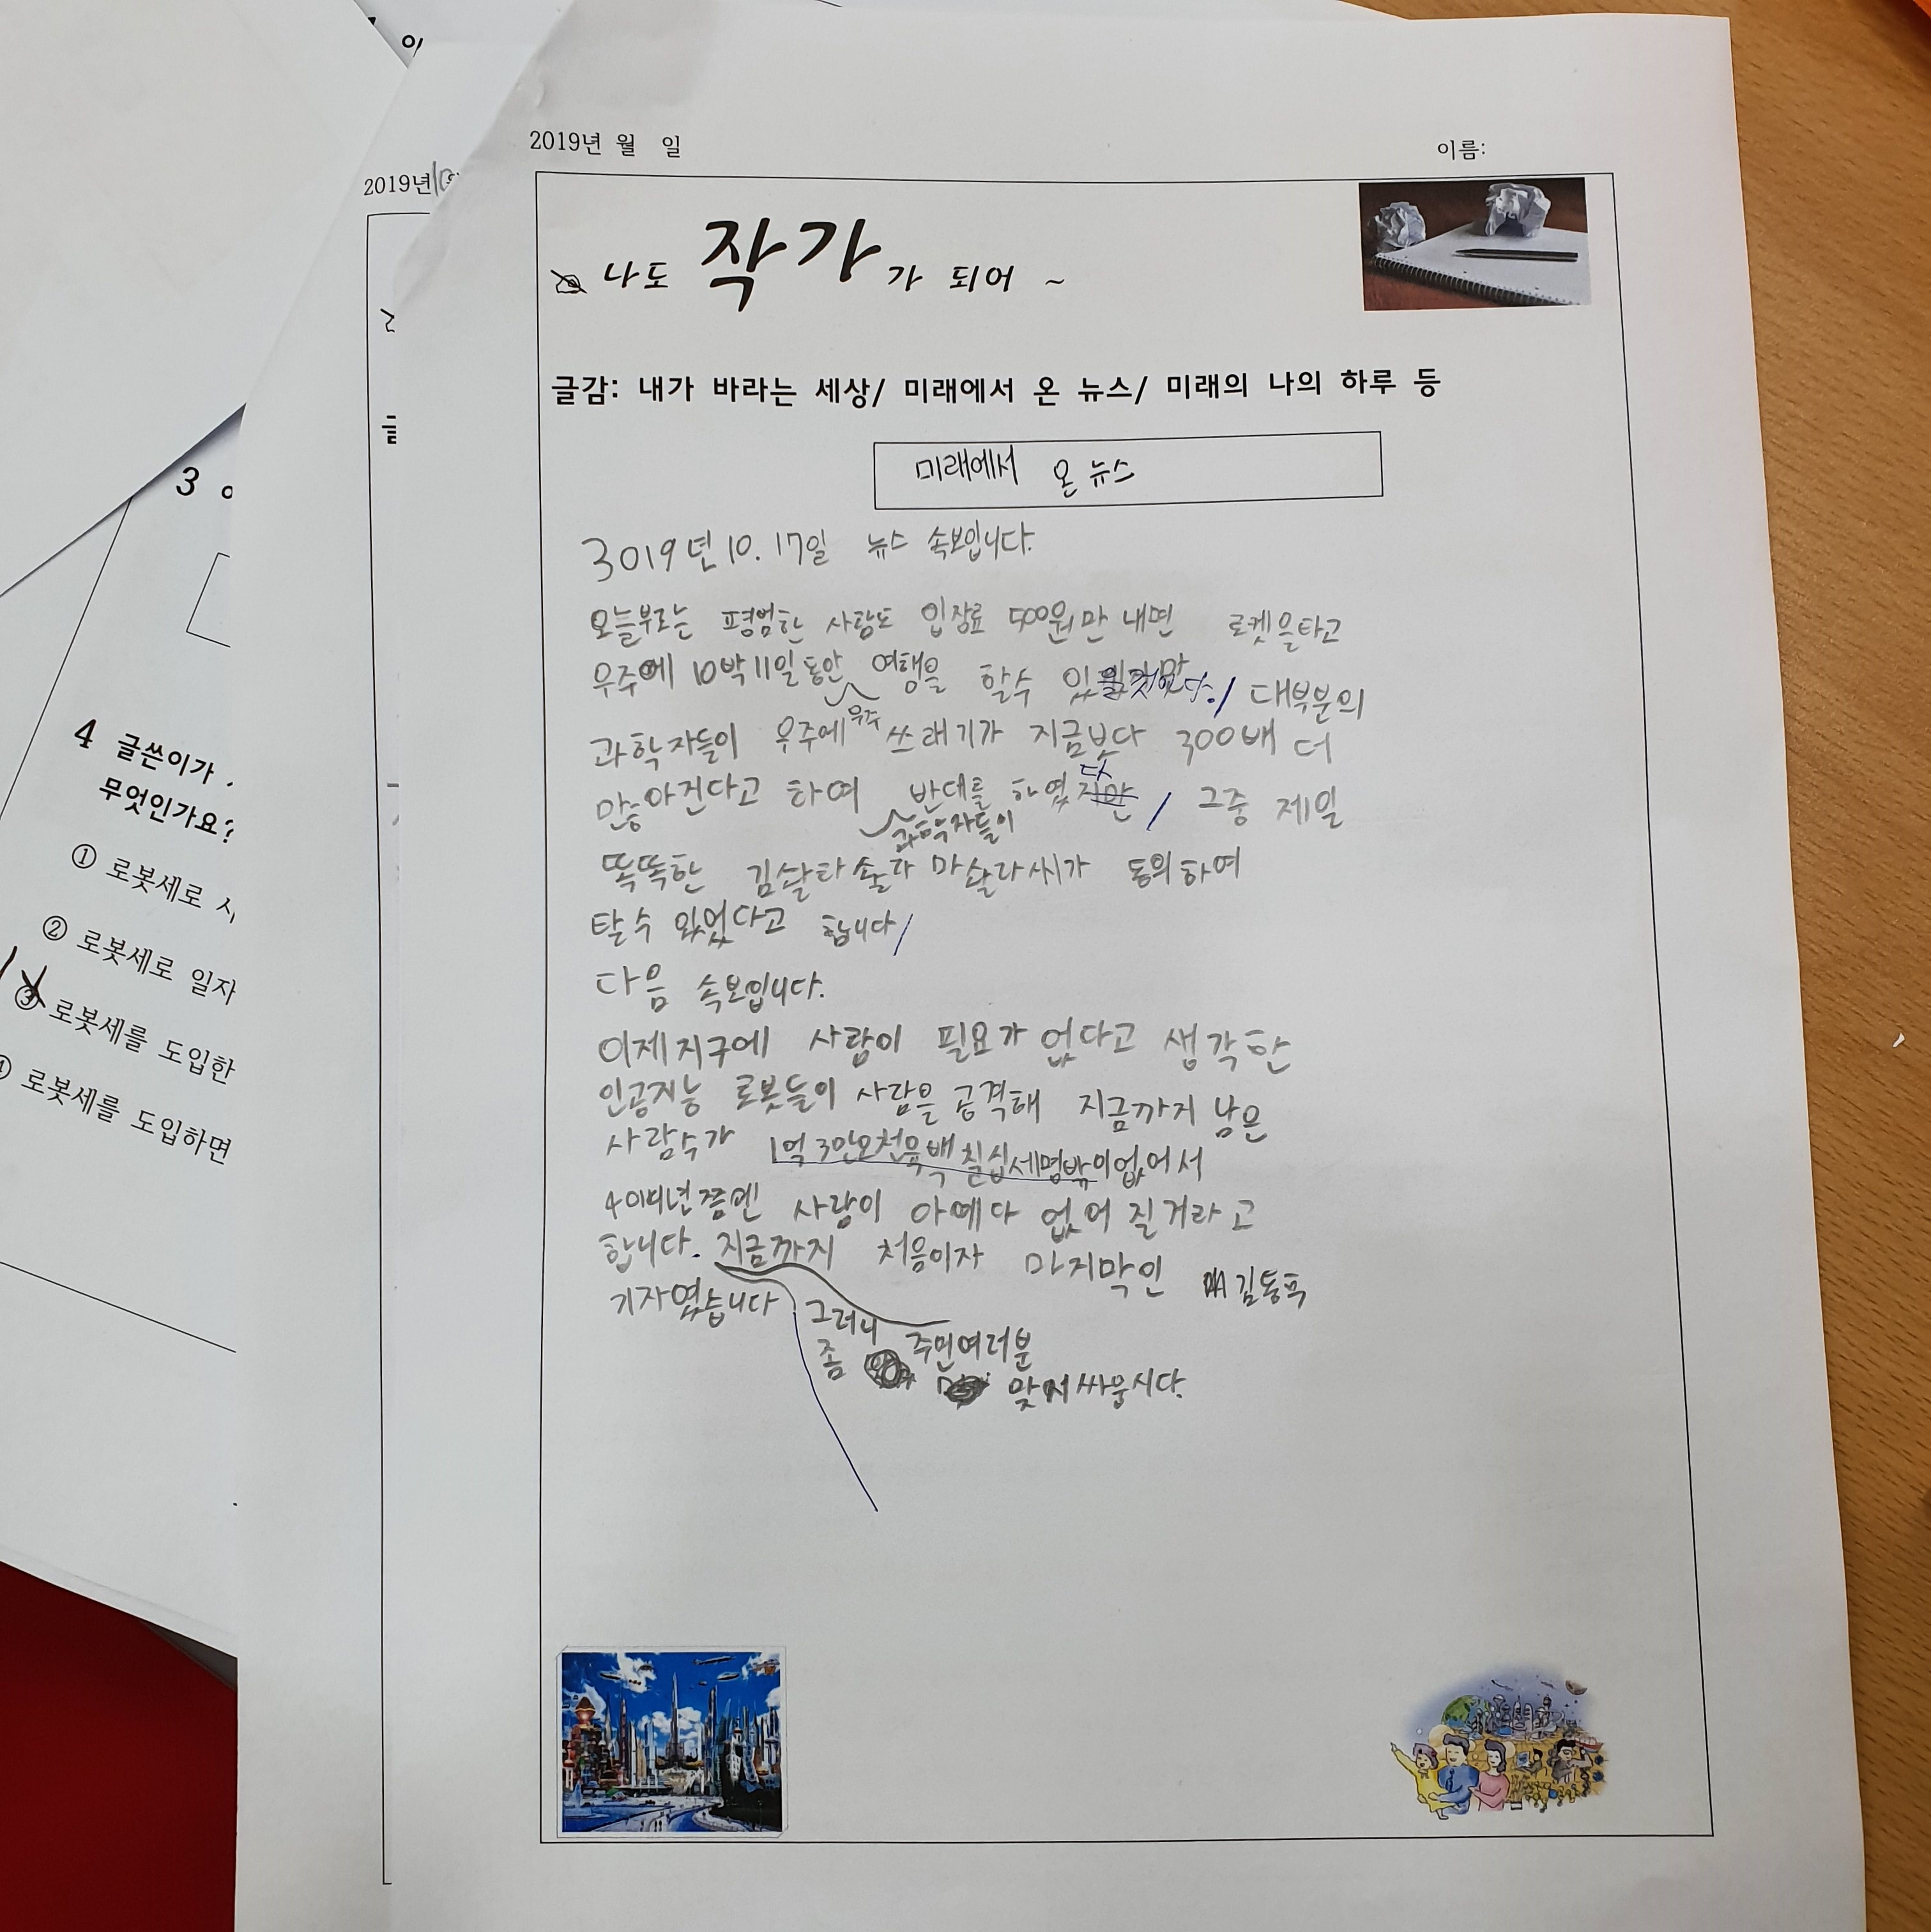 이
2019년
3
4 글쓴이가
무엇인가요?
① 로봇세로
② 로봇세로 일자
③ 로봇세를 도입한
로봇세를 도입하면
2019년 월 일
이름:
나도 작가가 되어 ~
글감: 내가 바라는 세상/ 미래에서 온 뉴스/ 미래의 나의 하루 등
미래에서 온 뉴스
3019년 10. 17일 뉴스 속보입니다.
오늘부로는 평범한 사람도 입장료 500원만 내면 로켓을타고
우주에 10박11일동안 여행을 할수 대부분의
과학자들이 우주에 우주 쓰래기가 지금보다 300배 더
많아진다고 하여 반대를 하였다 / 그중 제일
과학자들이
똑똑한 김살라솔라마살라씨가 동의하여
탈수 있었다고 합니다/
다음 속보입니다.
이제지구에 사람이 필요가 없다고 생각한
인공지능 로봇들이 사람을 공격해 지금까지 남은
사람수가 1억3만오천육백칠십세명밖이없어서
사람이 아예다 없어질거라고
합니다. 지금까지 처음이자 마지막인 김동푹
기자였습니다
그러니 주민여러분
좀 맞서싸웁시다.